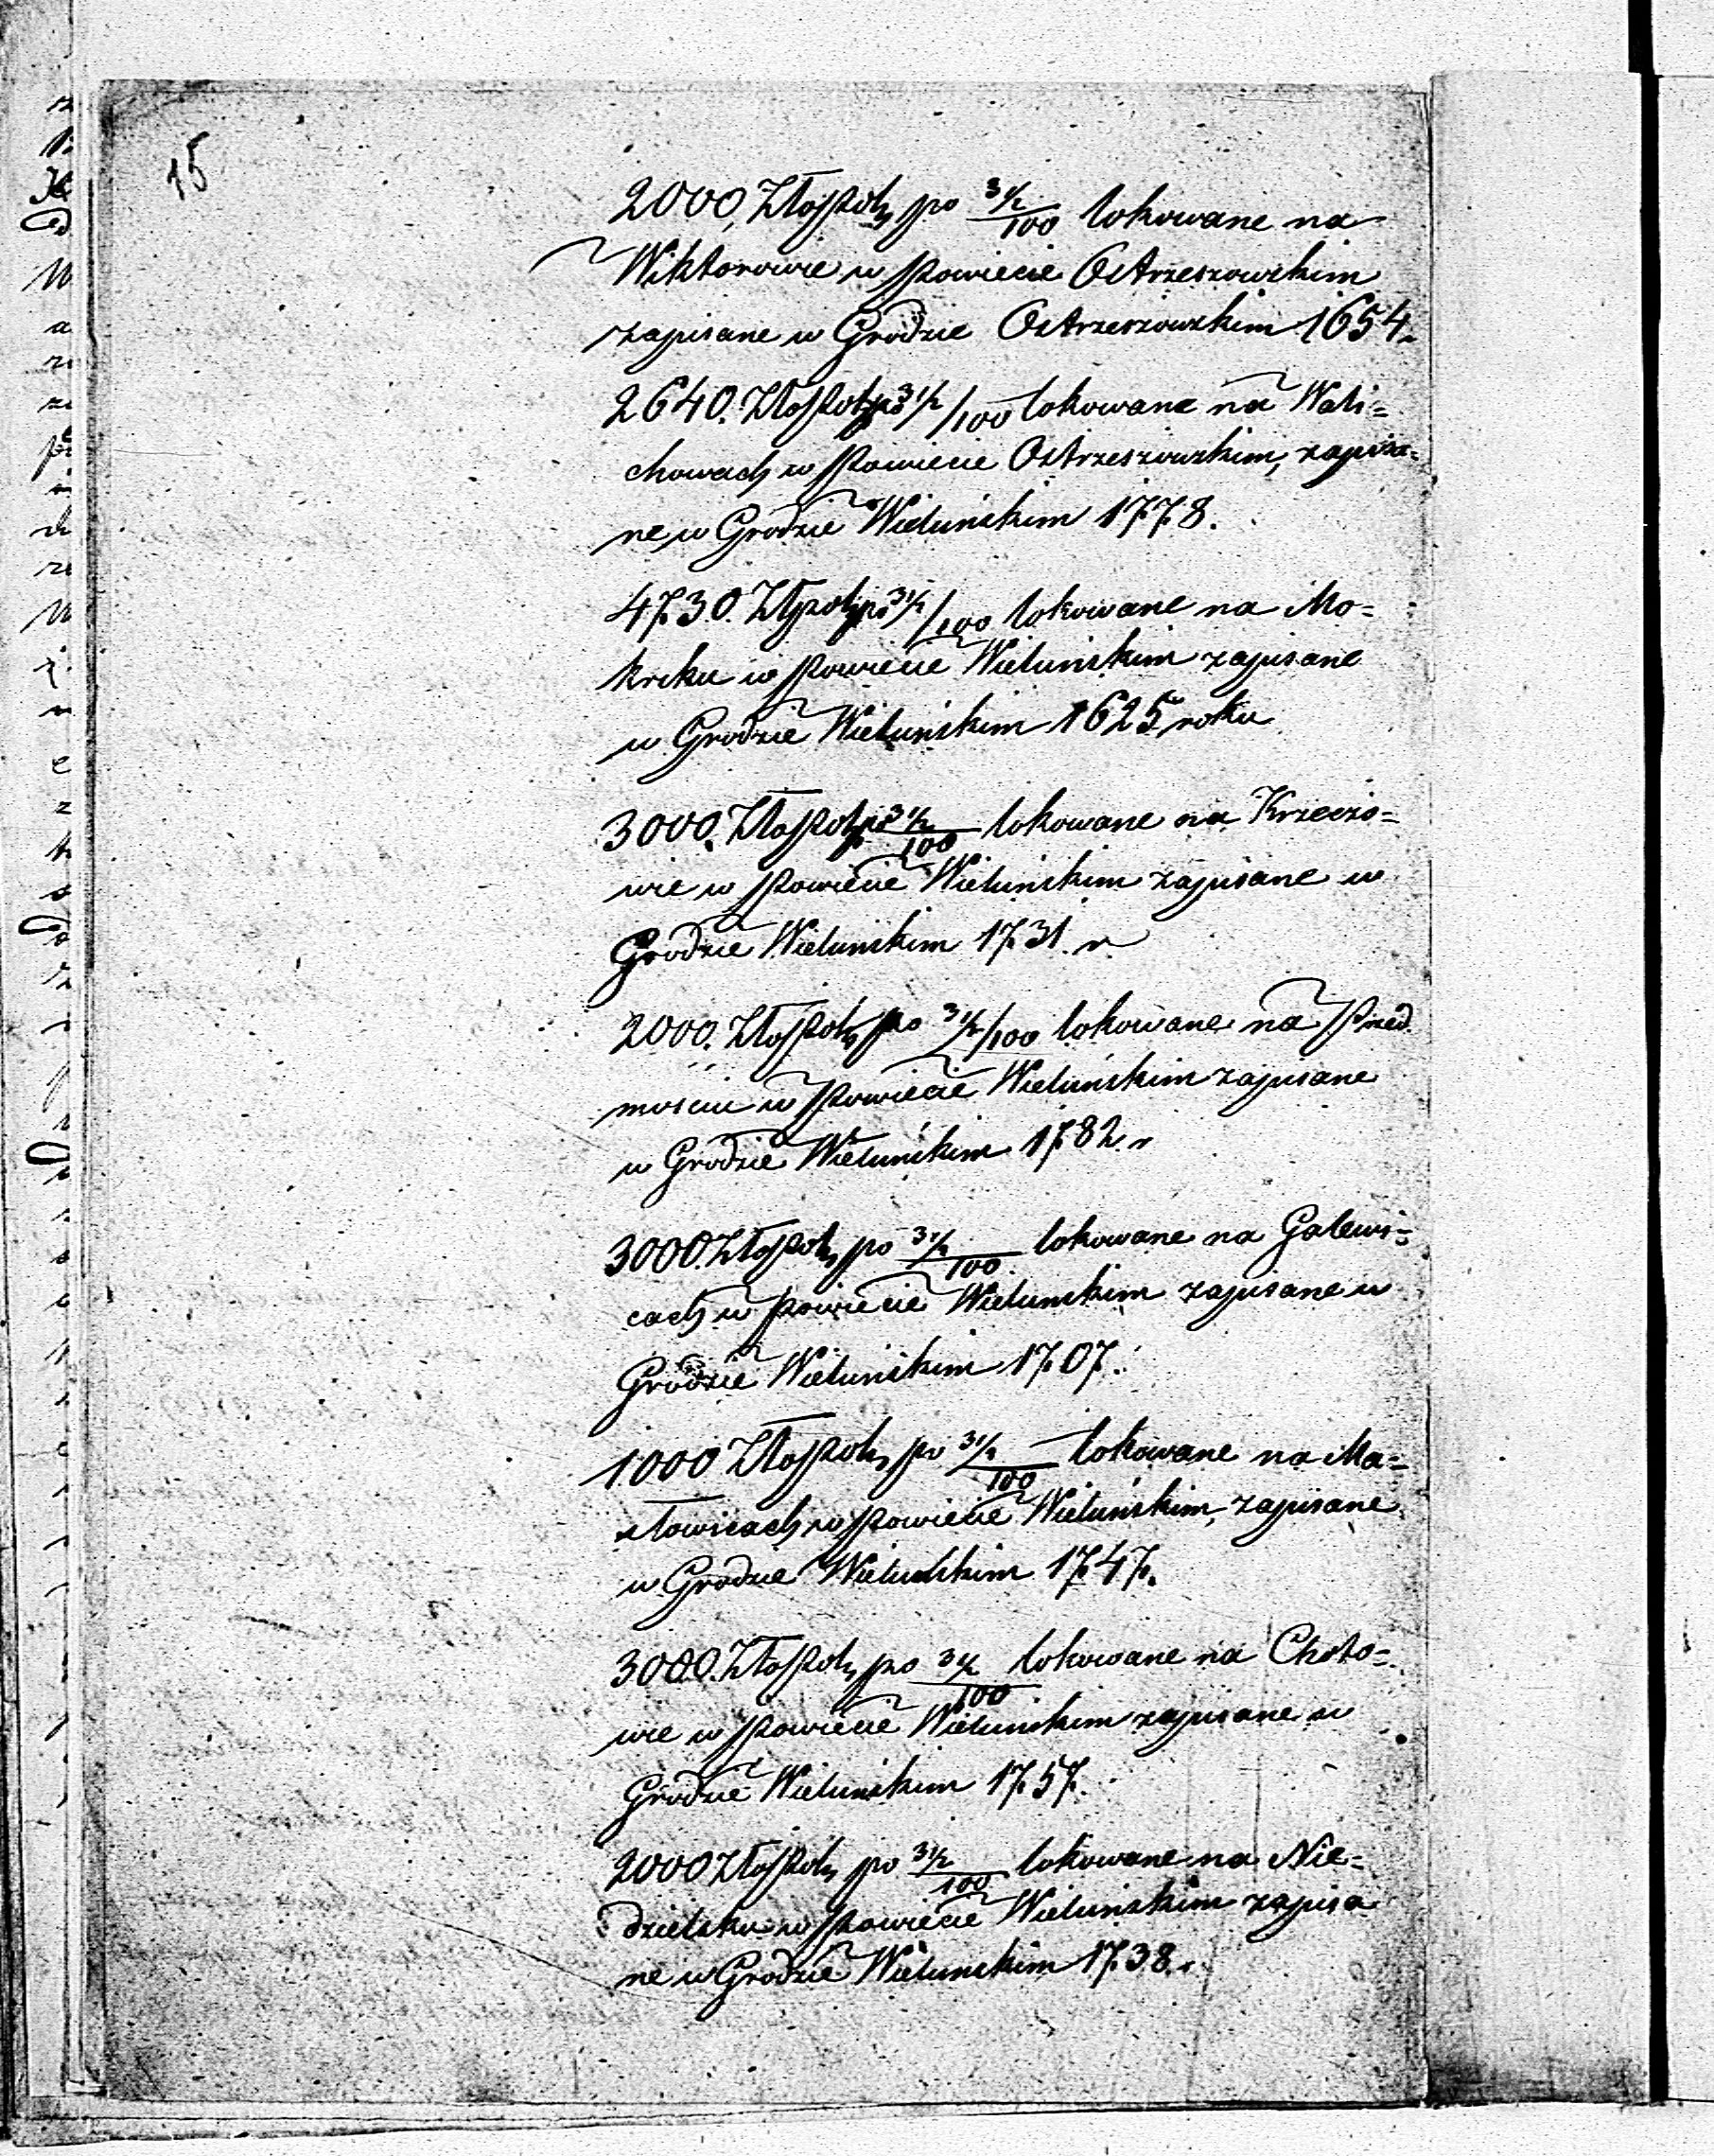 15
2000, Złoppols po 3½/100 lokowane na
Wiktorowie w Powiecie Ostrzeszowskim
zapisane w Grodzie Ostrzeszowskim 1654.
2640. Złoppols po 3½/100 lokowane na Wali=
chowach w Powiecie Ostrzeszowskim, zapisa=
ne w Grodzie Wieluńskim 1778.
4730. Złppols po 3½/100 lokowane na Mo=
krsku w Powiecie Wieluńskim zapisane
w Grodzie Wieluńskim 1625 roku
3000. Złoppols po 3½/100 lokowane na Krzeczo=
wie w Powiecie Wieluńskim zapisane w
Grodzie Wieluńskim 1731. r
2000. Złoppols po 3½/100 lokowane na Przed
mosciu w Powiecie Wieluńskim zapisane
w Grodzie Wieluńskim 1782. r
3000 Złoppols po 3½/100 lokowane na Galewi=
cach w Powiecie Wieluńskim zapisane w
Grodzie Wieluńskim 1707.
1000 Złoppols po 3½/100 lokowane na Ma=
słowicach w Powiecie Wieluńskim, zapisane
w Grodzie Wieluńskim 1747.
3000. Złoppols po 3½/100 lokowane na Choto=
wie w Powiecie Wieluńskim zapisane w
Grodzie Wieluńskim 1757.
2000 Złoppols po 3½/100 lokowane na Nie=
dzielsku w Powiecie Wieluńskim zapisa
ne w Grodzie Wieluńskim 1738. r